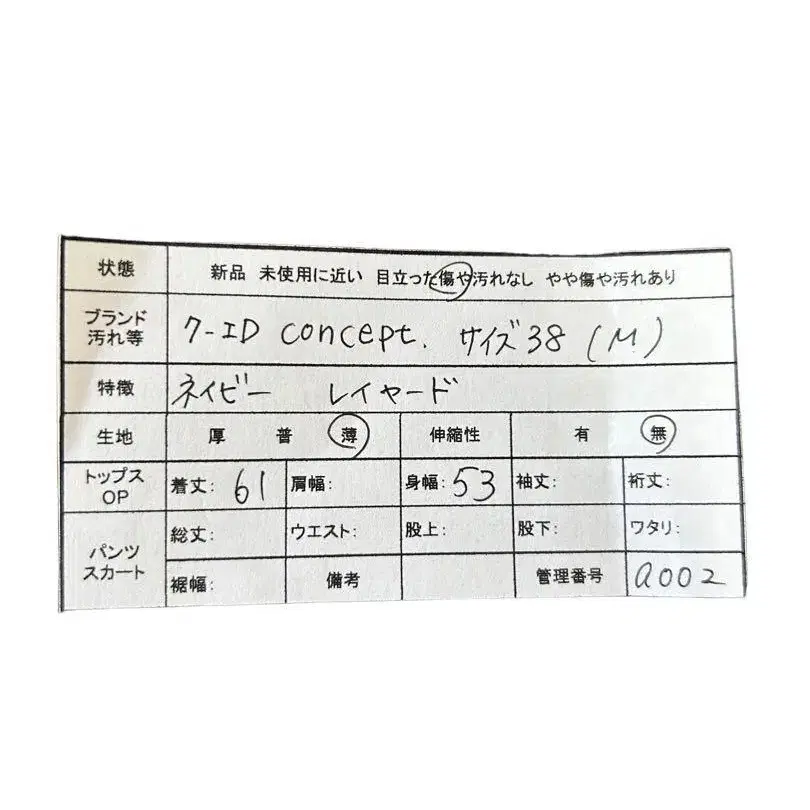 状態 新品 未使用に近い 目立った傷や汚れなし やや傷や汚れあり
ブランド
汚れ等 7-ID concept. サイズ38 (M)
特徴 ネイビー レイヤード
生地 厚 普 薄 伸縮性 有 無
トップス
OP 着丈: 61 肩幅: 身幅: 53 袖丈: 裄丈:
パンツ
スカート 総丈: ウエスト: 股上: 股下: ワタリ:
裾幅: 備考 管理番号 a002